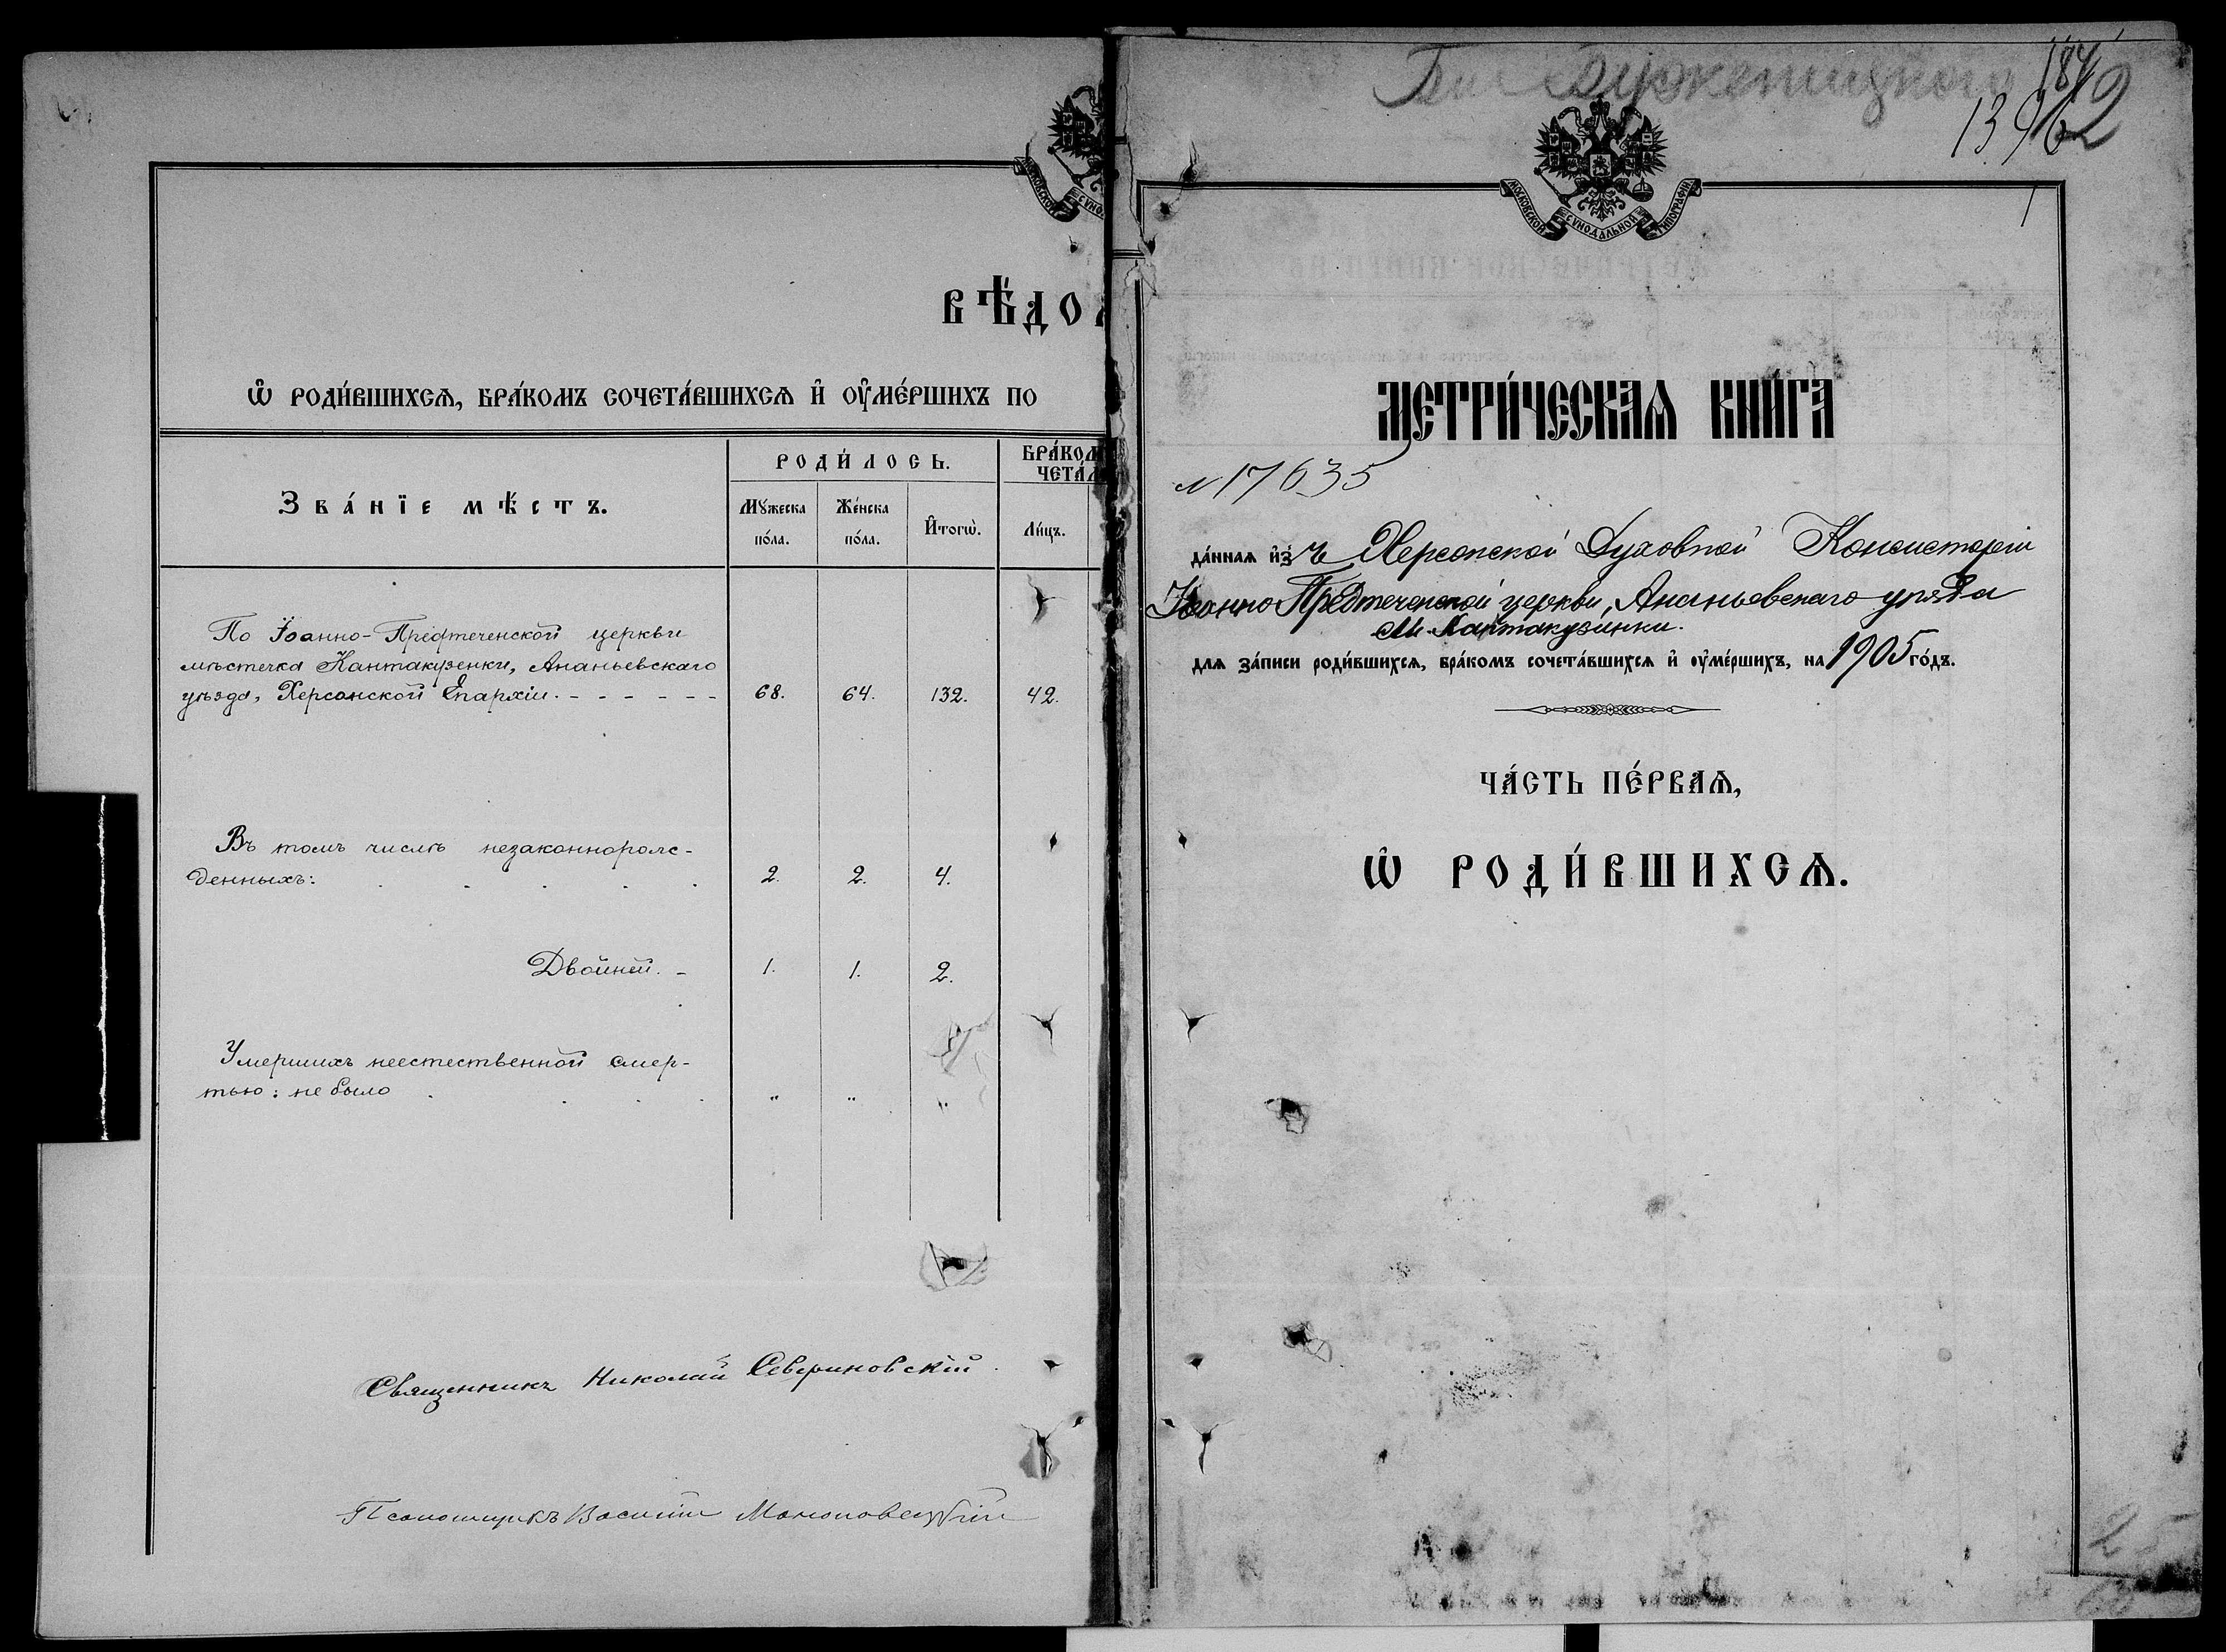 МОСКОВСКОЙ СѴНОДА
ВѢДО
Ѡ РОДИ́ВШИХСѦ, БРА́КОМЪ СОЧЕТА́ВШИХСѦ И҆ ОУ҆МЕ́РШИХЪ ПО
Зва́нїе мѣ́стъ.
РОДИ́ЛОСЬ.
БРА́КОМ
ЧЕТА́Л
Мꙋ́жеска по́ла.
Же́нска по́ла.
И҆тогѡ̀.
Ли́цъ.
По Іоанно-Предтеченской церкви
мѣстечка Кантакузенки, Ананьевскаго
уѣзда, Херсонской Епархіи. - - - - - - 68. 64. 132. 42.
Въ томъ числѣ незаконнорож-
денныхъ: . . . . . 2. 2. 4.
Двойней. - 1. 1. 2.
Умершихъ неестественной смер-
тью: не было . . . . " " "
Священникъ Николай Севериновскій.
Псаломщикъ Василій
184
1396
2
МОСКОВСКОЙ СѴНОДАЛЬНОЙ ТИПОГРАФІИ
1
МЕТРИ́ЧЕСКАѦ КНИ́ГА
N 17635
да́ннаѧ и҆зъ Херсонской Духовной Консисторіи
Іоанно Предтеченской церкви, Ананьевскаго уѣзда
м. Кантакузинки.
для за́писи роди́вшихсѧ, бра́комъ сочета́вшихсѧ и҆ оу҆ме́ршихъ, на 1905 го́дъ.
ЧА́СТЬ ПЕ́РВАѦ,
Ѡ РОДИ́ВШИХСѦ.
25